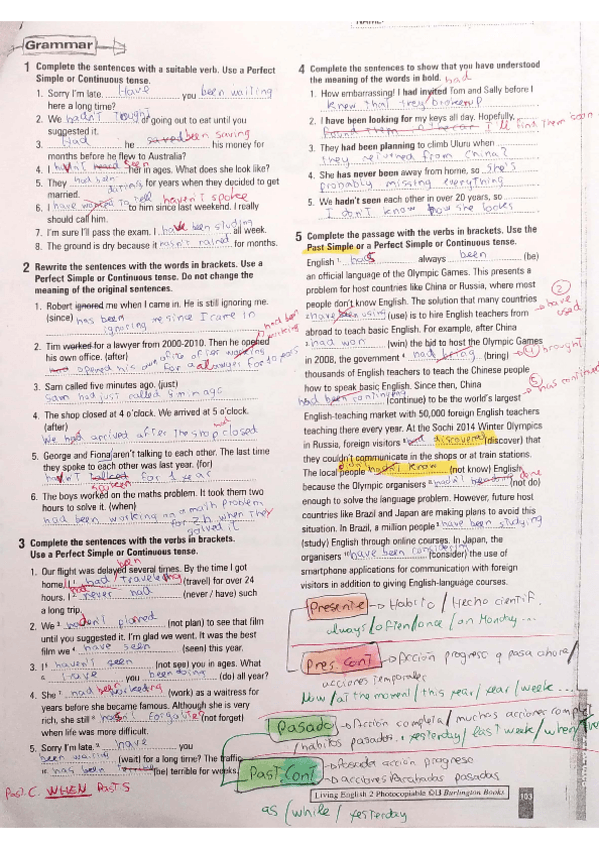 NAME:
Grammar
1 Complete the sentences with a suitable verb. Use a Perfect
Simple or Continuous tense.
1. Sorry I'm late. Have you been waiting
here a long time?
2. We hadn't thought of going out to eat until you
suggested it.
3. Had he saved been saving his money for
months before he flew to Australia?
4. I haven't heard seen her in ages. What does she look like?
5. They had been dating for years when they decided to get
married.
6. I have wanted to tell haven't spoke to him since last weekend. I really
should call him.
7. I'm sure I'll pass the exam. I have been studing all week.
8. The ground is dry because it hasn't rained for months.
2 Rewrite the sentences with the words in brackets. Use a
Perfect Simple or Continuous tense. Do not change the
meaning of the original sentences.
1. Robert ignored me when I came in. He is still ignoring me.
(since) has been
ignoring me since I came in
2. Tim worked for a lawyer from 2000-2010. Then he opened
had been working
his own office. (after)
opened his own office after working
for a lawyer for 10 years
3. Sam called five minutes ago. (just)
Sam had just called 5 m ago
4. The shop closed at 4 o'clock. We arrived at 5 o'clock.
(after)
We had arrived after the shop had closed
5. George and Fiona aren't talking to each other. The last time
they spoke to each other was last year. (for)
haven't talked for 1 year
spoken
6. The boys worked on the maths problem. It took them two
hours to solve it. (when)
had been working on a math problem
for 2 h when they
solved it
3 Complete the sentences with the verbs in brackets.
Use a Perfect Simple or Continuous tense.
1. Our flight was delayed several times. By the time I got
home, I ¹ had been traveling (travel) for over 24
hours. I ² had never had (never / have) such
a long trip.
2. We ³ hadn't planned (not plan) to see that film
until you suggested it. I'm glad we went. It was the best
film we ⁴ have seen (seen) this year.
3. I ⁵ haven't seen (not see) you in ages. What
⁶ have you been doing (do) all year?
4. She ⁷ had been working (work) as a waitress for
years before she became famous. Although she is very
rich, she still ⁸ hasn't (not forget)
when life was more difficult.
5. Sorry I'm late. ⁹ have you
been waiting (wait) for a long time? The traffic
¹⁰ has been (be) terrible for weeks.
Past C. WHEN Past S
4 Complete the sentences to show that you have understood
the meaning of the words in bold.
had
1. How embarrassing! I had invited Tom and Sally before I
knew that they broken up
2. I have been looking for my keys all day. Hopefully,
I'll find them soon
3. They had been planning to climb Uluru when
they returned from China?
4. She has never been away from home, so she's
probably missing everything
5. We hadn't seen each other in over 20 years, so
I don't know how she looks
5 Complete the passage with the verbs in brackets. Use the
Past Simple or a Perfect Simple or Continuous tense.
English ¹ has always been (be)
an official language of the Olympic Games. This presents a
problem for host countries like China or Russia, where most
people don't know English. The solution that many countries
² have been using (use) is to hire English teachers from
② have used
abroad to teach basic English. For example, after China
³ had won (win) the bid to host the Olympic Games
in 2008, the government ⁴ had bring (bring)
④ brought
thousands of English teachers to teach the Chinese people
how to speak basic English. Since then, China
⑤ has continued
had been continuing (continue) to be the world's largest
English-teaching market with 50,000 foreign English teachers
teaching there every year. At the Sochi 2014 Winter Olympics
in Russia, foreign visitors discovered (discover) that
they couldn't communicate in the shops or at train stations.
The local people didn't know (not know) English
because the Olympic organisers ⁸ hadn't done (not do)
enough to solve the language problem. However, future host
countries like Brazil and Japan are making plans to avoid this
situation. In Brazil, a million people ⁹ have been studying
(study) English through online courses. In Japan, the
organisers ¹⁰ have been considering (consider) the use of
smartphone applications for communication with foreign
visitors in addition to giving English-language courses.
Presente → Hábito / Hecho científ.
always / often / once / on Monday...
Pres. Cont → Acción progreso q pasa ahora /
acciones temporales
Now / at the moment / this year / year / week...
Pasado → Acción completa / muchas acciones compl
/ hábitos pasados. yesterday / last week / when
Past. Cont → Pasada acción progreso
→ acciones pasadas
as / while / yesterday
Living English 2 Photocopiable © Burlington Books
103